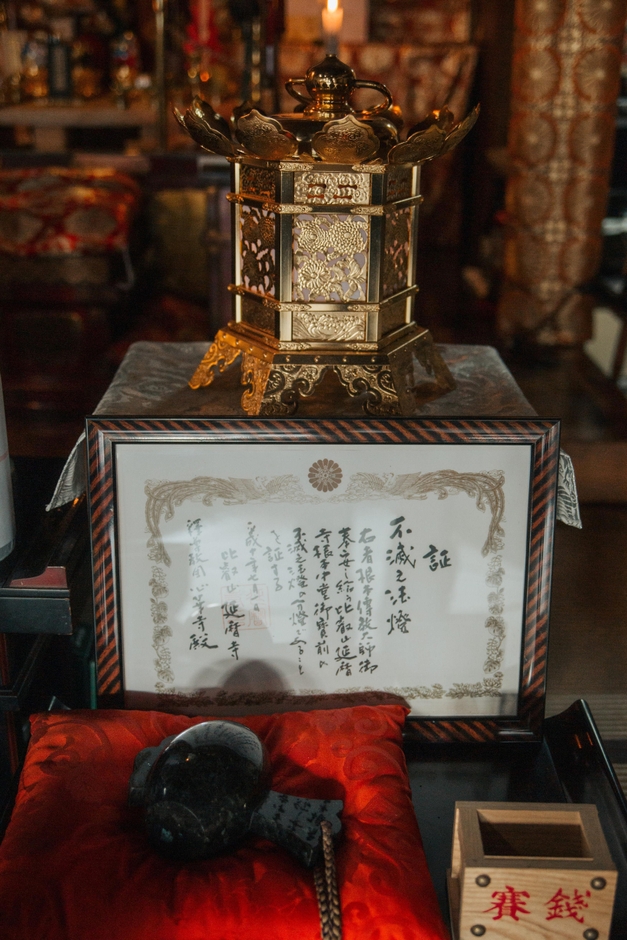 証
不滅之法燈
右者根本傳教大師御
奉安し給う比叡山延暦
寺根本中堂御寶前の
不滅之法燈の分燈であること
を証する
比叡山 延暦寺
寺殿
賽錢